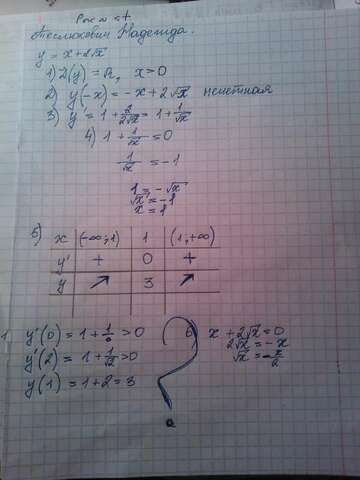 Теслюкевич Надежда.
y = x + 2√x
1) D(y) = R, x > 0
2) y(-x) = -x + 2√x нечетная
3) y' = 1 + 2/2√x = 1 + 1/√x
4) 1 + 1/√x = 0
1/√x = -1
1 = -√x
√x = -1
x = 1
5) x (-∞; 1) 1 (1, +∞)
y' + 0 +
y ↗ 3 ↗
y'(0) = 1 + 1/0 > 0
y'(2) = 1 + 1/√2 > 0
y(1) = 1 + 2 = 3
?
6) x + 2√x = 0
2√x = -x
√x = -x/2